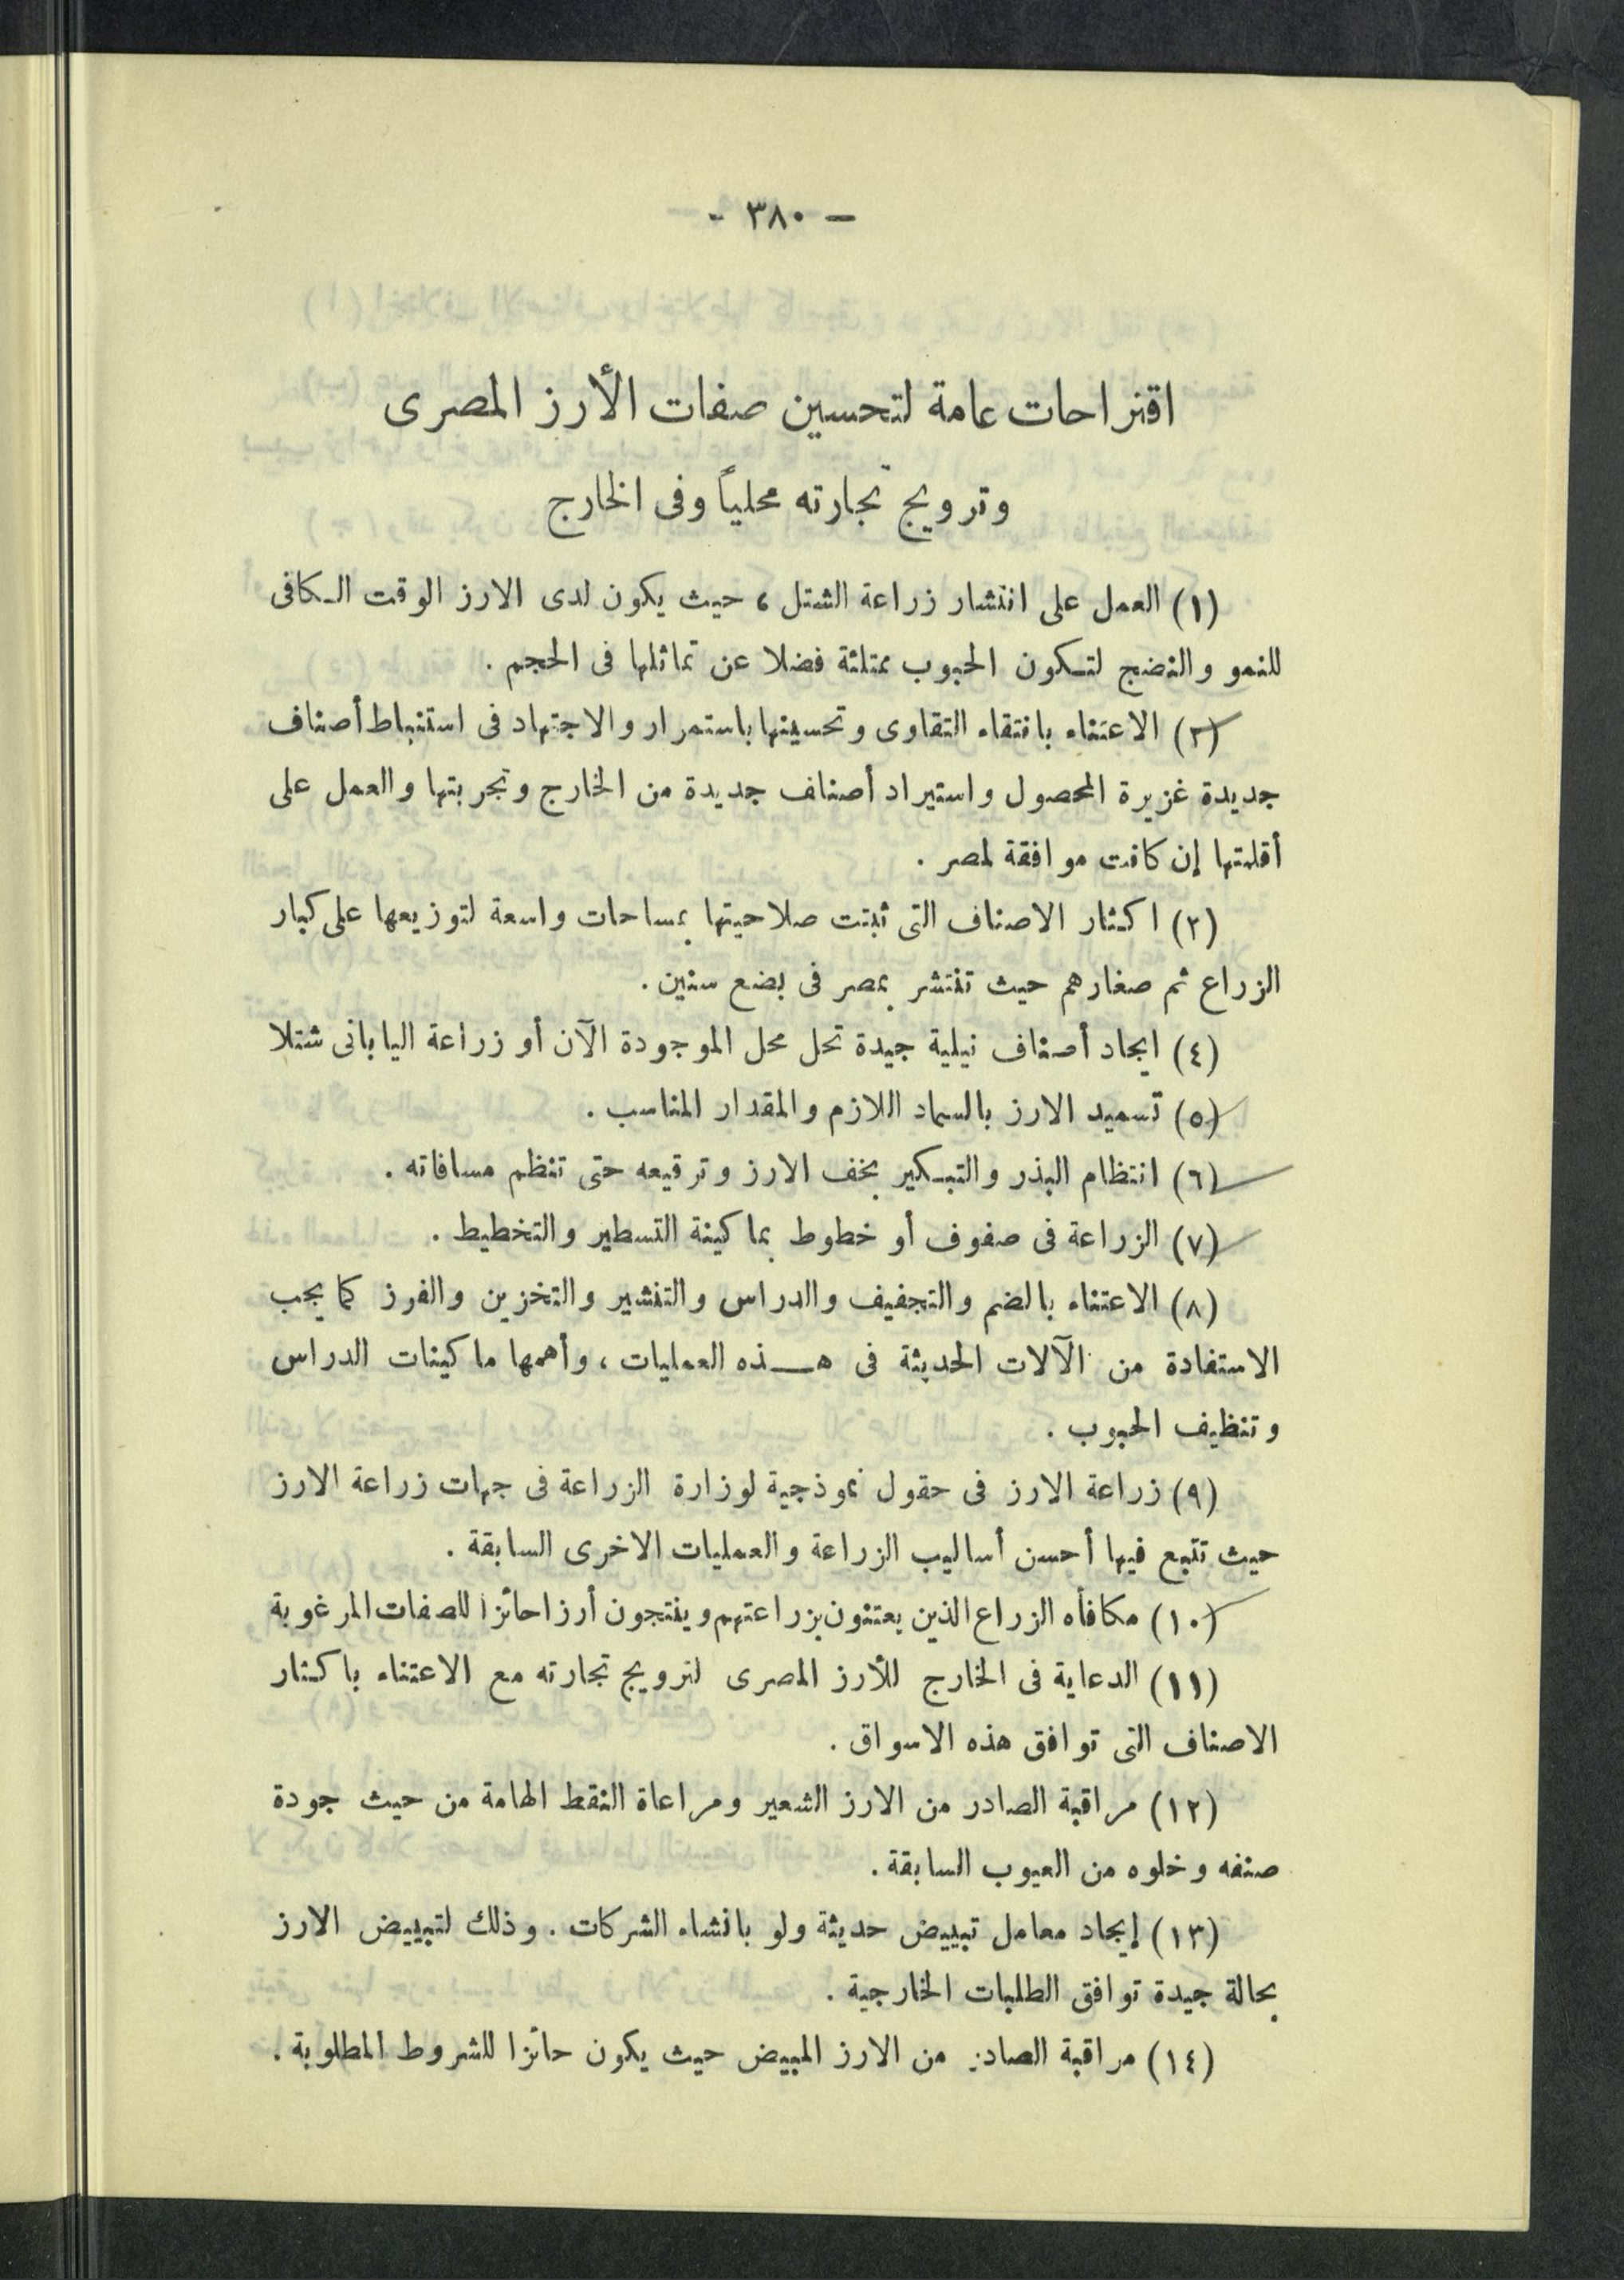 — ٣٨٠ -
اقتراحات عامة لتحسين صفات الأرز المصرى
وترويج تجارته محلياً وفى الخارج
(١) العمل على انتشار زراعة الشتل ، حيث يكون لدى الارز الوقت الكافى
للنمو والنضج لتكون الحبوب ممتلئة فضلا عن تماثلها فى الحجم .
(٢) الاعتناء بانتقاء التقاوى وتحسينها باستمرار والاجتهاد فى استنباط أصناف
جديدة غزيرة المحصول واستيراد أصناف جديدة من الخارج وتجربتها والعمل على
أقلمتها إن كانت موافقة لمصر .
(٣) اكثار الاصناف التى ثبتت صلاحيتها بمساحات واسعة لتوزيعها على كبار
الزراع ثم صغارهم حيث تنتشر بمصر فى بضع سنين .
(٤) ايجاد أصناف نيلية جيدة تحل محل الموجودة الآن أو زراعة اليابانى شتلا
(٥) تسميد الارز بالسماد اللازم والمقدار المناسب .
(٦) انتظام البذر والتبكير بخف الارز وترقيعه حتى تنظم مسافاته .
(٧) الزراعة فى صفوف أو خطوط بماكينة التسطير والتخطيط .
(٨) الاعتناء بالضم والتجفيف والدراس والتنشير والتخزين والفرز كما يجب
الاستفادة من الآلات الحديثة فى هذه العمليات ، وأهمها ماكينات الدراس
وتنظيف الحبوب .
(٩) زراعة الارز فى حقول نموذجية لوزارة الزراعة فى جهات زراعة الارز
حيث تتبع فيها أحسن أساليب الزراعة والعمليات الاخرى السابقة .
(١٠) مكافأه الزراع الذين يعتنون بزراعتهم وينتجون أرزا حائزا للصفات المرغوبة
(١١) الدعاية فى الخارج للأرز المصرى لترويج تجارته مع الاعتناء باكثار
الاصناف التى توافق هذه الاسواق .
(١٢) مراقبة الصادر من الارز الشعير ومراعاة النقط الهامة من حيث جودة
صنفه وخلوه من العيوب السابقة .
(١٣) إيجاد معامل تبييض حديثة ولو بانشاء الشركات . وذلك لتبييض الارز
بحالة جيدة توافق الطلبات الخارجية .
(١٤) مراقبة الصادر من الارز المبيض حيث يكون حائزا للشروط المطلوبة .